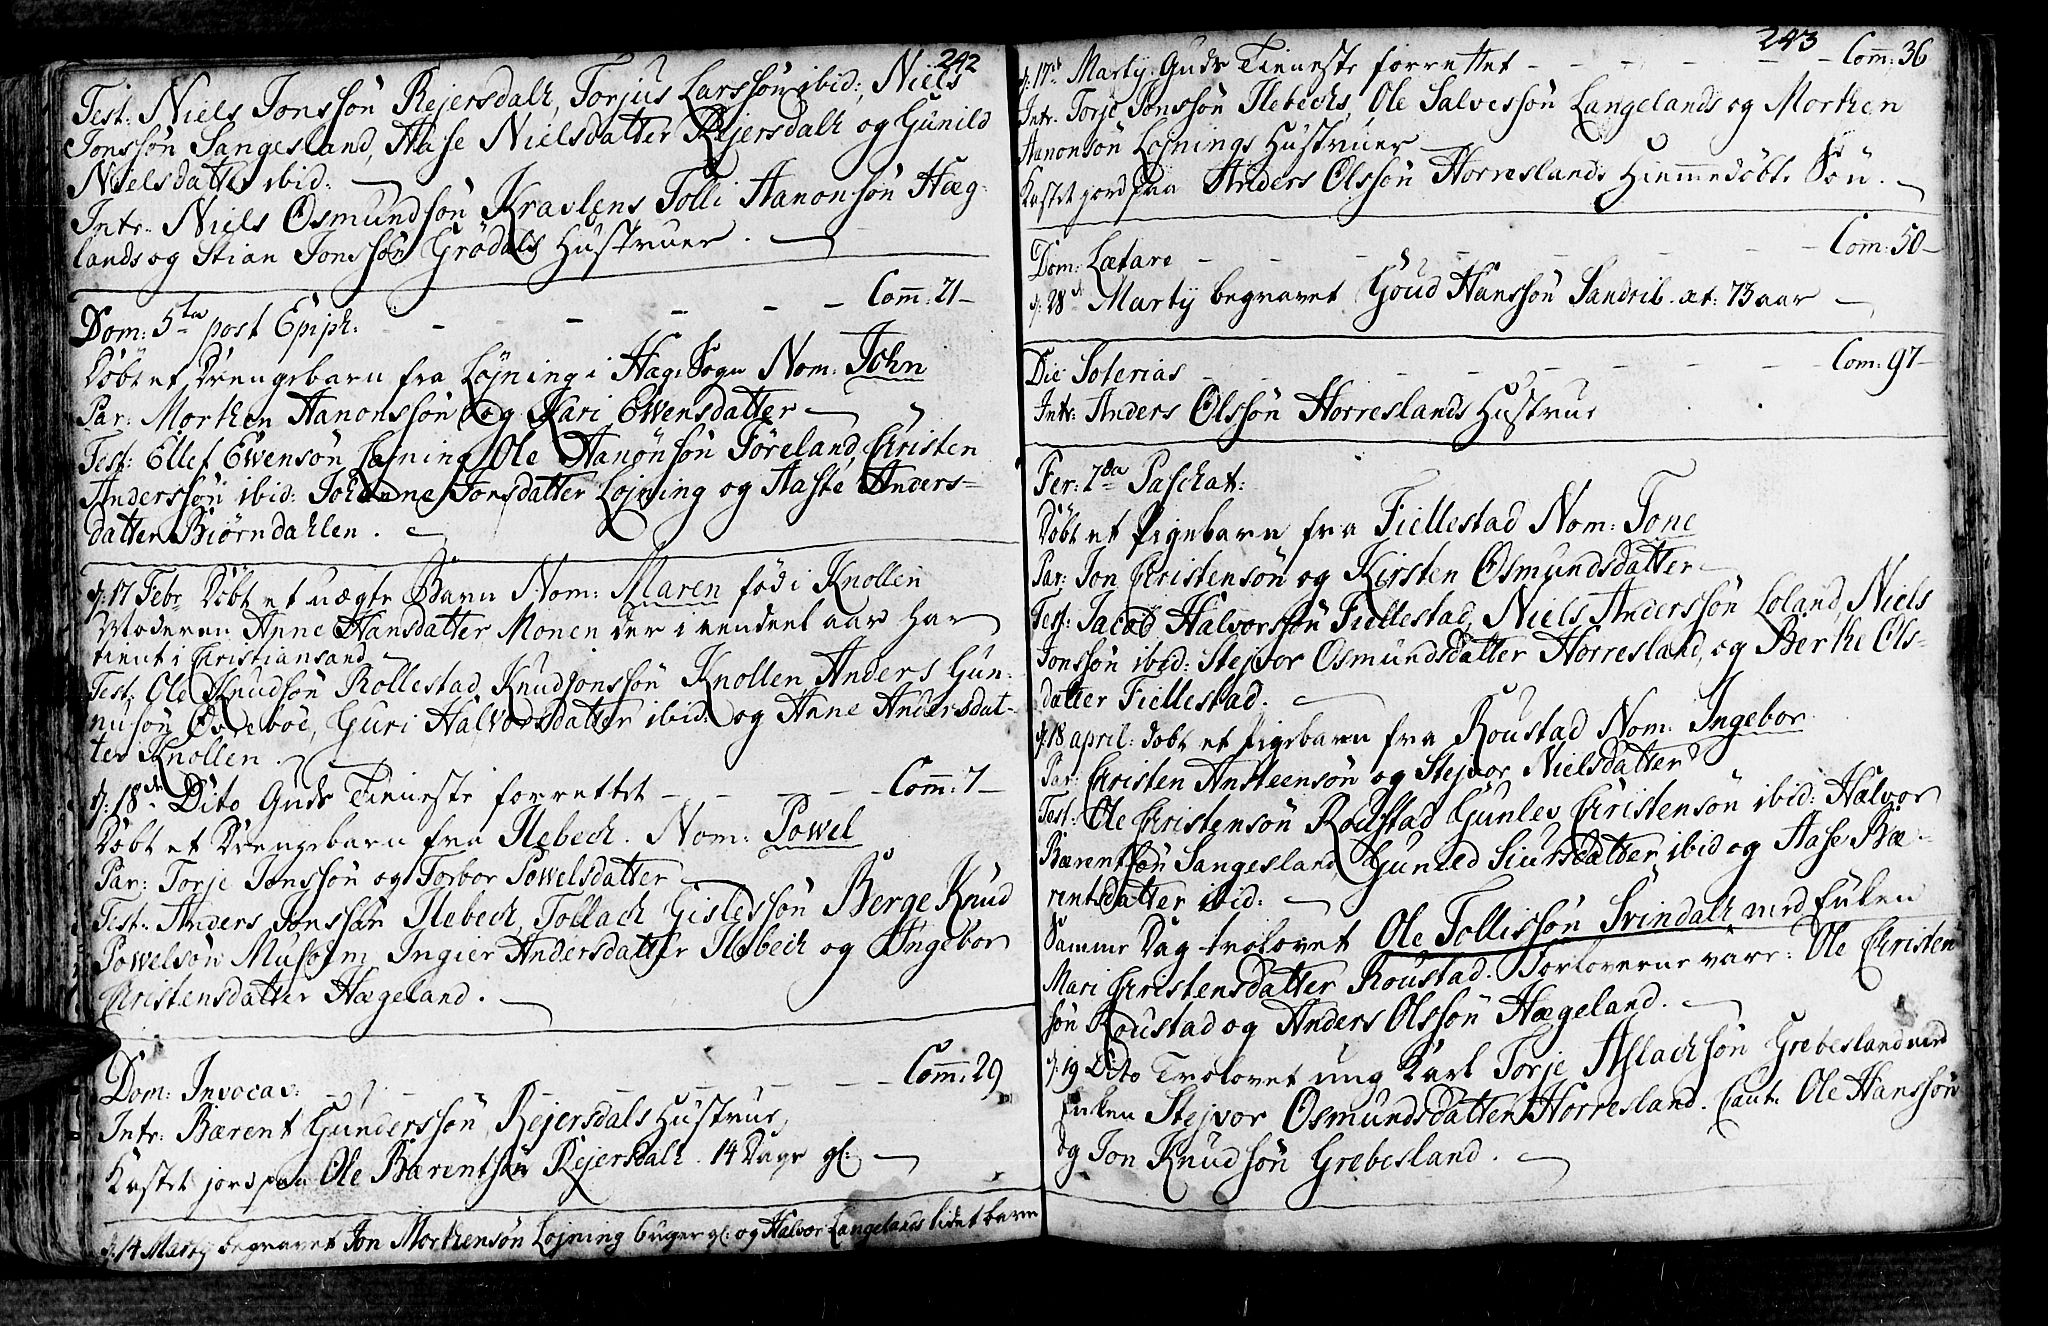 242
Test: Niels Jonssøn Rejersdall, Torjus Larssøn ibid:, Niels
Jonssøn Sangesland, Aase Nielsdatter Rejersdall og Gunild
Nielsdatter ibid:
Intr: Niels Osmundsøn Kravlens Tolli Aanonsøn Hæg-
lands og Stian Jonssøn Grødals Hustruer.
Dom: 5ta post Epiph: Com: 21
Døbt et Drengebarn fra Løjning i Hæg: Sogn Nom: John
Par: Morthen Aanonssøn og Kari Ewensdatter
Test: Ellef Ewensøn Løjning Ole Aanonsøn Føreland, Christen
Anderssøn ibid: Johanne Jonsdatter Lojning og Aaste Anders-
datter Biørndahlen.
d: 17 Febr Døbt et uægte Barn Nom: Maren fød i Knollen
Moderen Anne Hansdatter Monen der i eendeel aar har
tient i Christiansand
Test: Ole Knudsøn Rollestad, Knud Jonssøn Knollen Anders Gun-
nusøn Osreboe, Guri Halvorsdatter ibid: og Anne Andersdat-
ter Knollen.
d: 18de Dito Guds Tieneste forrettet Com: 7
Døbt et Drengebarn fra Ilebech. Nom: Powel
Par: Torje Jonssøn og Torbor Powelsdatter
Test: Anders Jonssøn Ilebech, Tollach Gislessøn Berge Knud
Powelsøn Musolm Ingier Andersdatter Ilebech og Angebor
Christensdatter Hægeland.
Dom: Invocav: Com: 29
Intr: Bærent Gunderssøn Rejersdals Hustrue,
Kastet jord paa Ole Bærentsøn Rejersdall. 14 Dage gl:
d: 14 Marty begravet Jon Morthensøn Lojning 6 uger gl: og Halvor Langelands lidet barn
243
d: 17de Marty Guds Tieneste forrettet Com: 36
Intr. Torje Jonssøn Ilebechs, Ole Salvessøn Langelands og Morthen
Aanonsøn Lojnings Hustruer
Kastet jord paa Anders Olssøn Horreslands Hiemmedøbte Søn.
Dom: Lætare Com: 50
d: 28de Marty begravet Goud Hanssøn Sandrib. æt: 73 aar
Die Soterias Com: 97
Intr: Anders Olssøn Horreslands Hustrue
Fer: 2da Paschat:
Døbt et Pigebarn fra Fiellestad Nom: Tone
Par: Jon Christensøn og Kirsten Osmundsdatter
Test: Jacob Halvorssøn Fiellestad, Niels Anderssøn Loland, Niels
Jonssøn ibid: Stejvor Osmundsdatter Horresland, og Berthe Ols-
datter Fiellestad.
d: 18 april: døbt et Pigebarn fra Roustad Nom: Ingebor
Par: Christen Ansteensøn og Stejvor Nielsdatter
Test: Ole Christensøn Roustad Gunlev Christensøn ibid: Halvor
Bærentsøn Sangesland Guned Siursdatter ibid og Aase Bæ-
rentsdatter ibid:
Samme Dag trolovet Ole Tollissøn Svindall med Enken
Mari Christensdatter Roustad. Forloverne vare: Ole Christen
søn Roustad og Anders Olssøn Hægeland.
d: 19 Dito Trolovet ung Karl Torje Aslachsøn Grebesland med
Enken Stejvor Osmundsdatter Horresland. Caut: Ole Hanssøn
og Jon Knudsøn Grebesland.